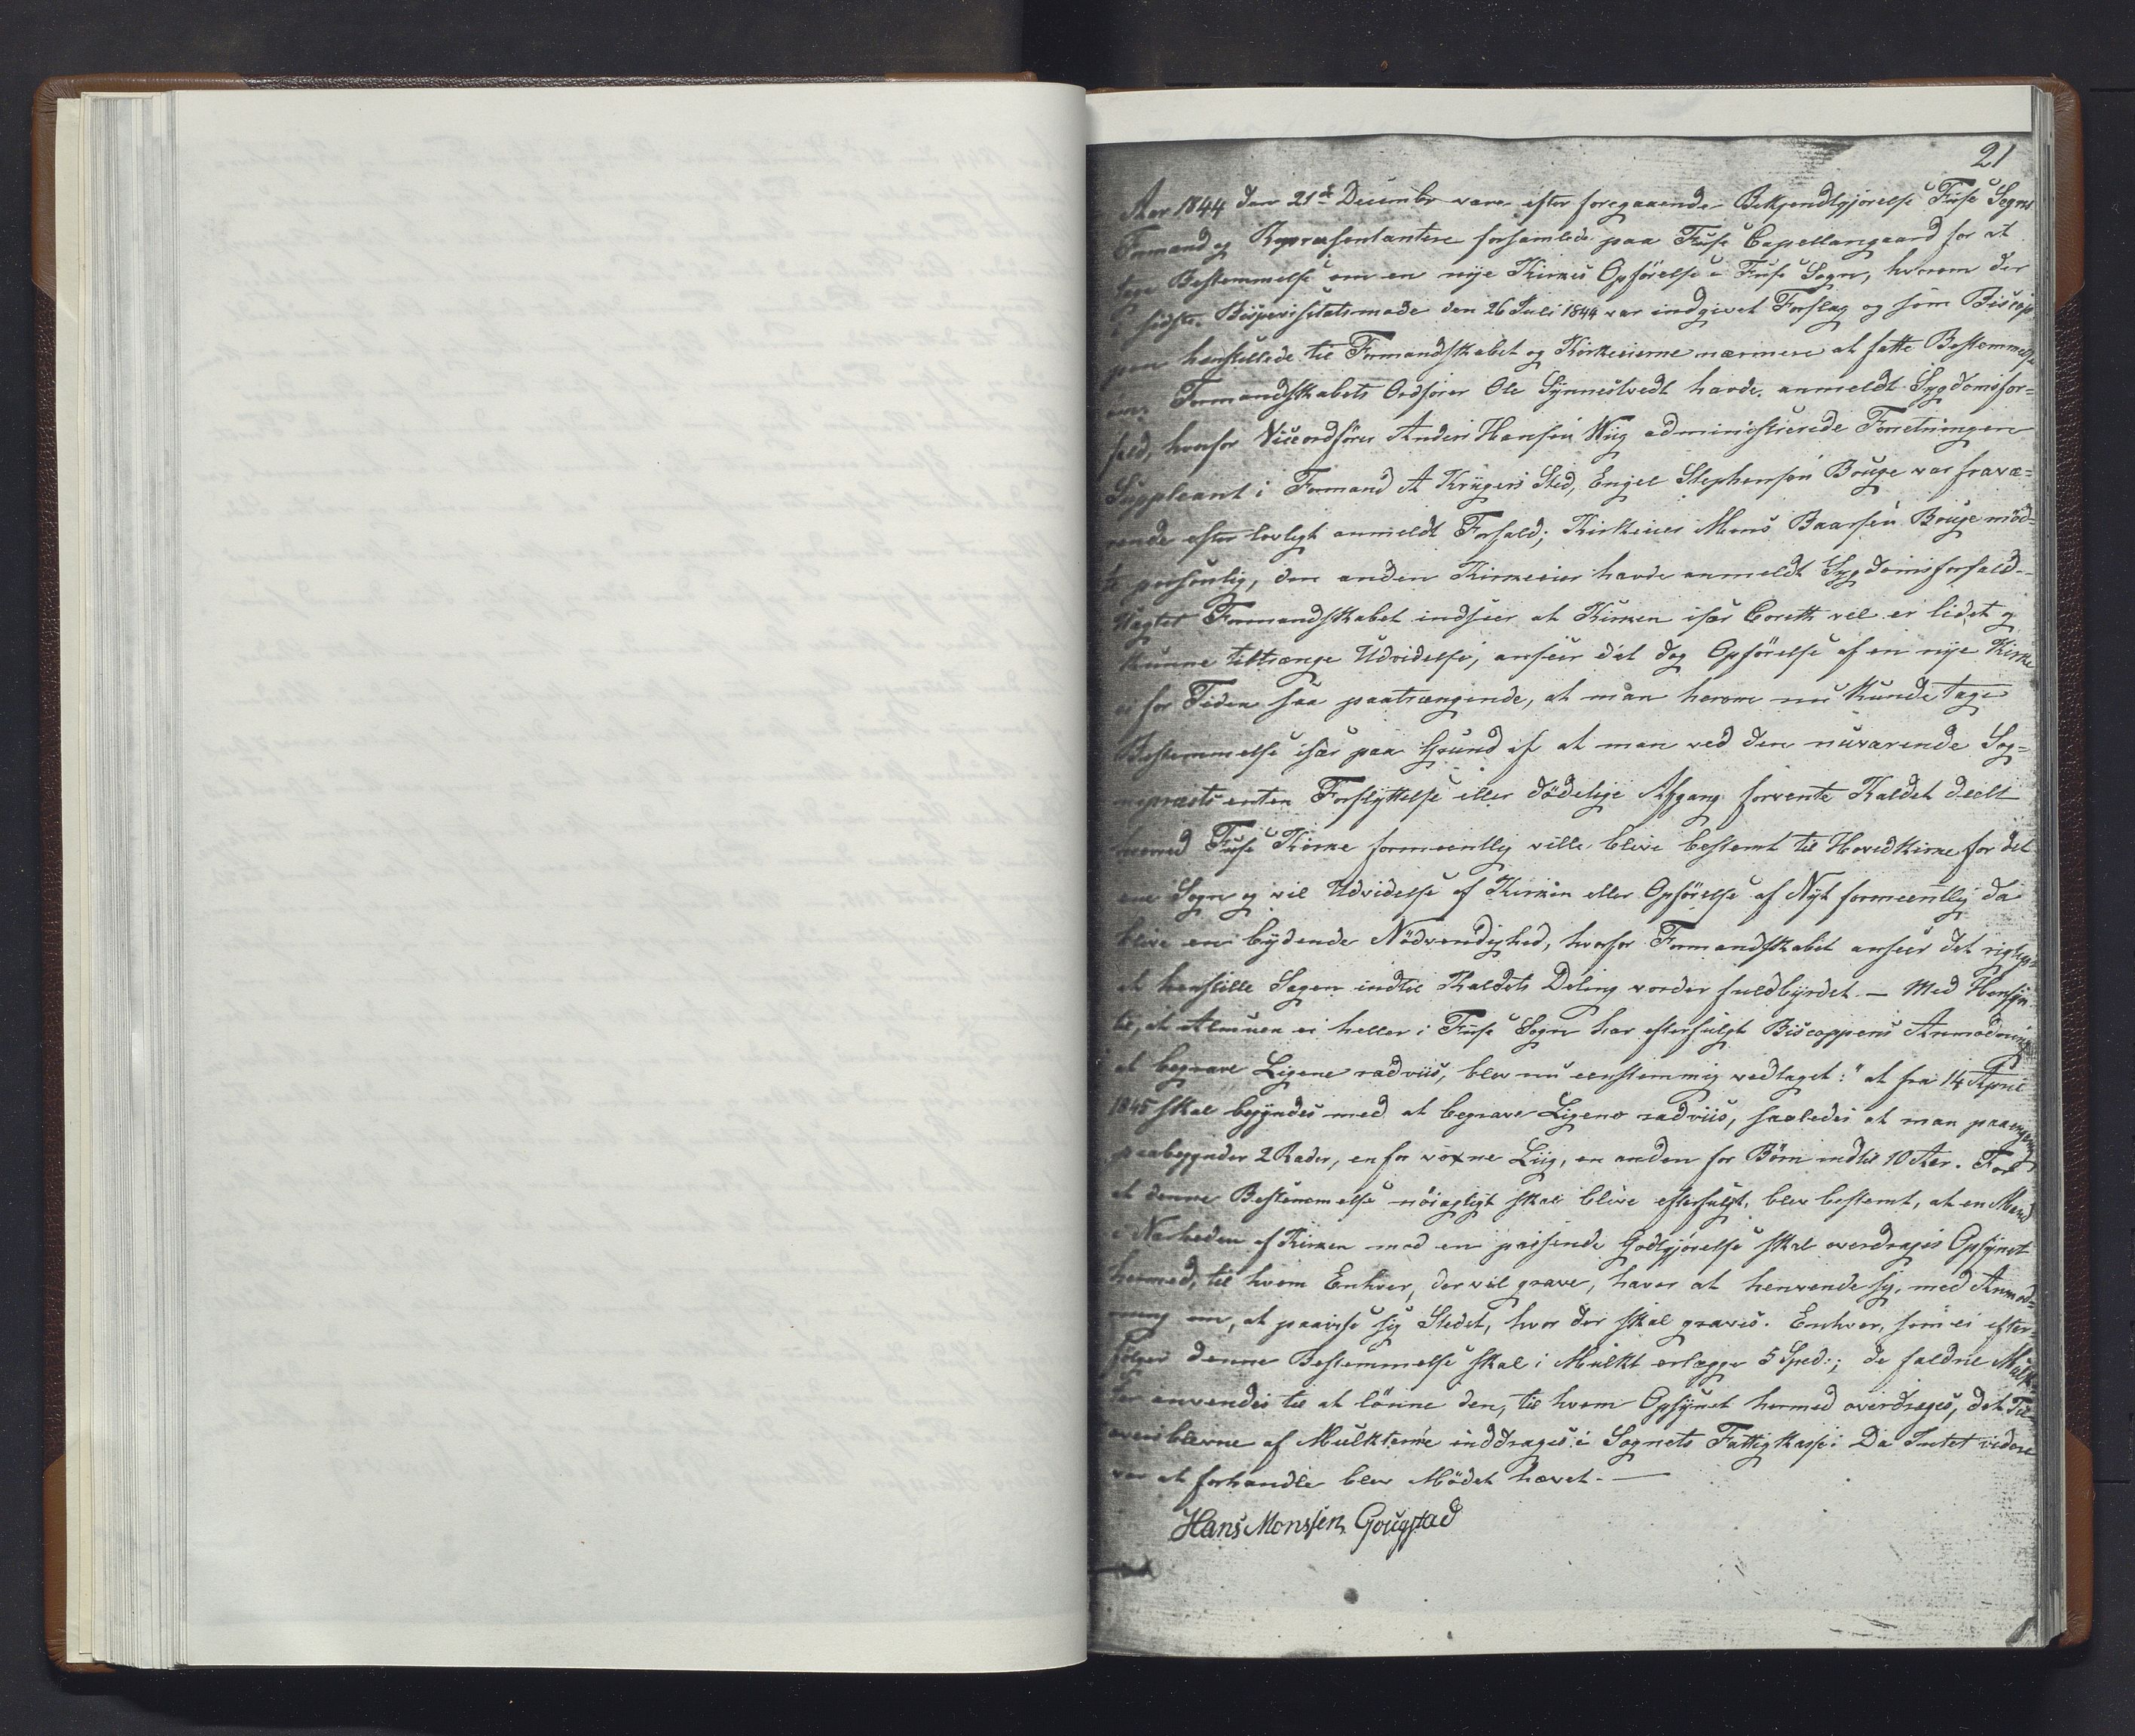 21
Aar 1844 den 21de December vare efter foregaaende Bekjendtgjørelse Fuse Sogns
Formænd og Repræsentantere forsamlede paa Fuse Capellangaard for at
tage Bestemmelse om en nye Kirkes Opførelse i Fuse Sogn, hvorom der
i sidste Bispevisitatsmøde den 26 Juli 1844 var indgivet Forslag og som Biscop-
pen henstillede til Formandskabet og Kirkeeierne nærmere at fatte Bestemmelse
om. Formandskabets Ordfører Ole Synnestvedt havde anmeldt Sygdomsfor=
fald, hvorfor Viceordfører Anders Hansen Wiig administrerede Forretningen
Suppleant i Formand A Krügers Sted, Engel Stephensen Bouge var fravæ=
rende efter lovligt anmeldt Forfald; Kirkeeier Mons Baarsen Bouge mød=
te personlig, den anden Kirkeeier havde anmeldt Sygdomsforfald.-
Uagtet Formandskabet indseer at Kirken især Coret vel er lidet og
kunne tiltrænge Udvidelse, anseer det dog Opførelse af en nye Kirke
ei for Tiden saa paatrængende, at man herom nu kunde tage
Bestemmelse især paa Grund af at man ved den nuværende Sog=
nepræsts enten Forflyttelse eller dødelige Afgang forvente Kaldet deelt
hvorved Fuse Kirke formeentlig ville blive bestemt til Hovedkirke for det
ene Sogn og vil Udvidelse af Kirken eller Opførelse af Nyt formeentlig da
blive en bydende Nødvendighed, hvorfor Formandskabet anseer det rigtigst
at henstille Sagen indtil Kaldets Deling vorder fuldbyrdet. — Med Hensyn
til, at Almuen ei heller i Fuse Sogn har efterfulgt Biscoppens Anmodning
at begrave Ligene radviis, blev nu eenstemmig vedtaget: "at fra 14 April
1845 skal begyndes med at begrave Ligene radviis, saaledes at man paa engang
paabegynder 2 Rader, en for voxne Liig, en anden for Børn indtil 10 Aar. For
at denne Bestemmelse nøiagtigt skal blive efterfulgt, blev bestemt, at en Mand
i Nærheden af Kirken mod en passende Godtgjørelse skal overdrages Opsynet
hermed, til hvem Enhver, der vil grave, haver at henvende sig, med Anmod=
ning om, at paavise sig Stedet, hvor der skal graves. Enhver, som ei efter=
følger denne Bestemmelse skal i Mulkt erlægge 5 Spd.; de faldne Mulk=
ter anvendes til at lønne den, til hvem Opsynet hermed overdrages, det Til=
oversblevne af Mulkterne inddrages i Sognets Fattigkasse. Da Intet videre
var at forhandle blev Mødet hævet. —
Hans Monssen Gougstad